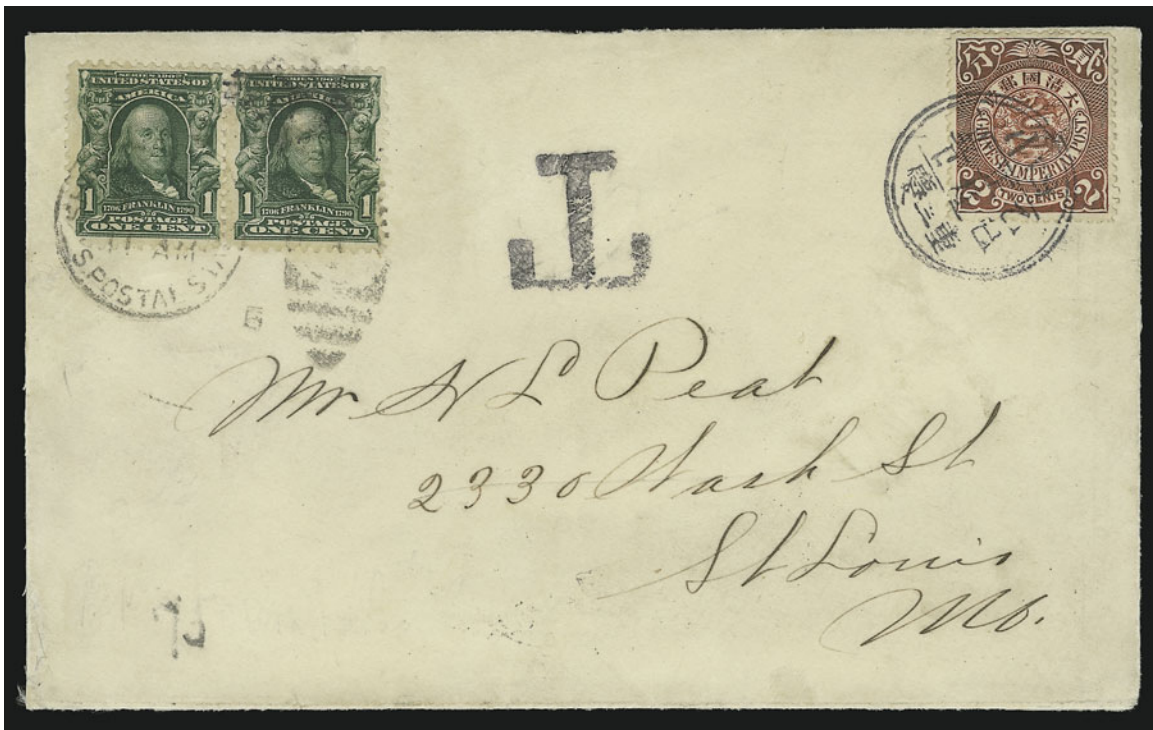 SERIES 1902
UNITED STATES OF
AMERICA
1 1
1706 FRANKLIN 1790
POSTAGE
ONE CENT
SERIES 1902
UNITED STATES OF
AMERICA
1 1
1706 FRANKLIN 1790
POSTAGE
ONE CENT
11 AM
S. POSTAL STA
6
T
分 貳
大清國郵政
CHINESE IMPERIAL POST
2 TWO CENTS 2
Mr
Peat
2330 Wash St
St Louis
Mo.